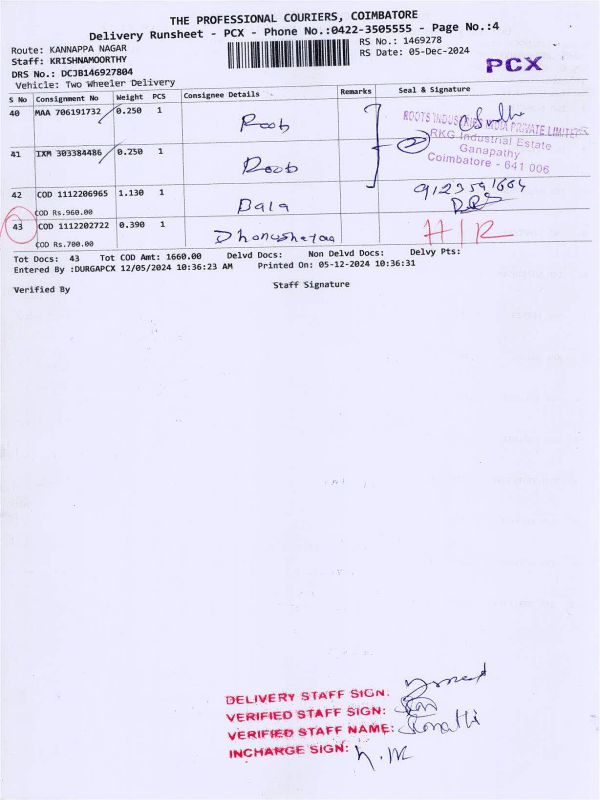 THE PROFESSIONAL COURIERS, COIMBATORE
Delivery Runsheet - PCX - Phone No.:0422-3505555 - Page No.:4
Route: KANNAPPA NAGAR
RS No.: 1469278
Staff: KRISHNAMOORTHY
RS Date: 05-Dec-2024
PCX
DRS No.: DCJB146927804
Vehicle: Two Wheeler Delivery
S No Consignment No Weight PCS Consignee Details Remarks Seal & Signature
40 MAA 706191732 0.250 1 Roob
ROOTS INDUSTRIES INDIA PRIVATE LIMITED
RKG Industrial Estate
Ganapathy
Coimbatore - 641 006
2
41 IXM 303384486 0.250 1 Roob
42 COD 1112206965 1.130 1 Bala 9123591664
COD Rs.960.00
43 COD 1112202722 0.390 1 H/R
COD Rs.700.00
Tot Docs: 43 Tot COD Amt: 1660.00 Delvd Docs: Non Delvd Docs: Delvy Pts:
Entered By :DURGAPCX 12/05/2024 10:36:23 AM Printed On: 05-12-2024 10:36:31
Verified By Staff Signature
DELIVERY STAFF SIGN:
VERIFIED STAFF SIGN:
VERIFIED STAFF NAME:
INCHARGE SIGN: